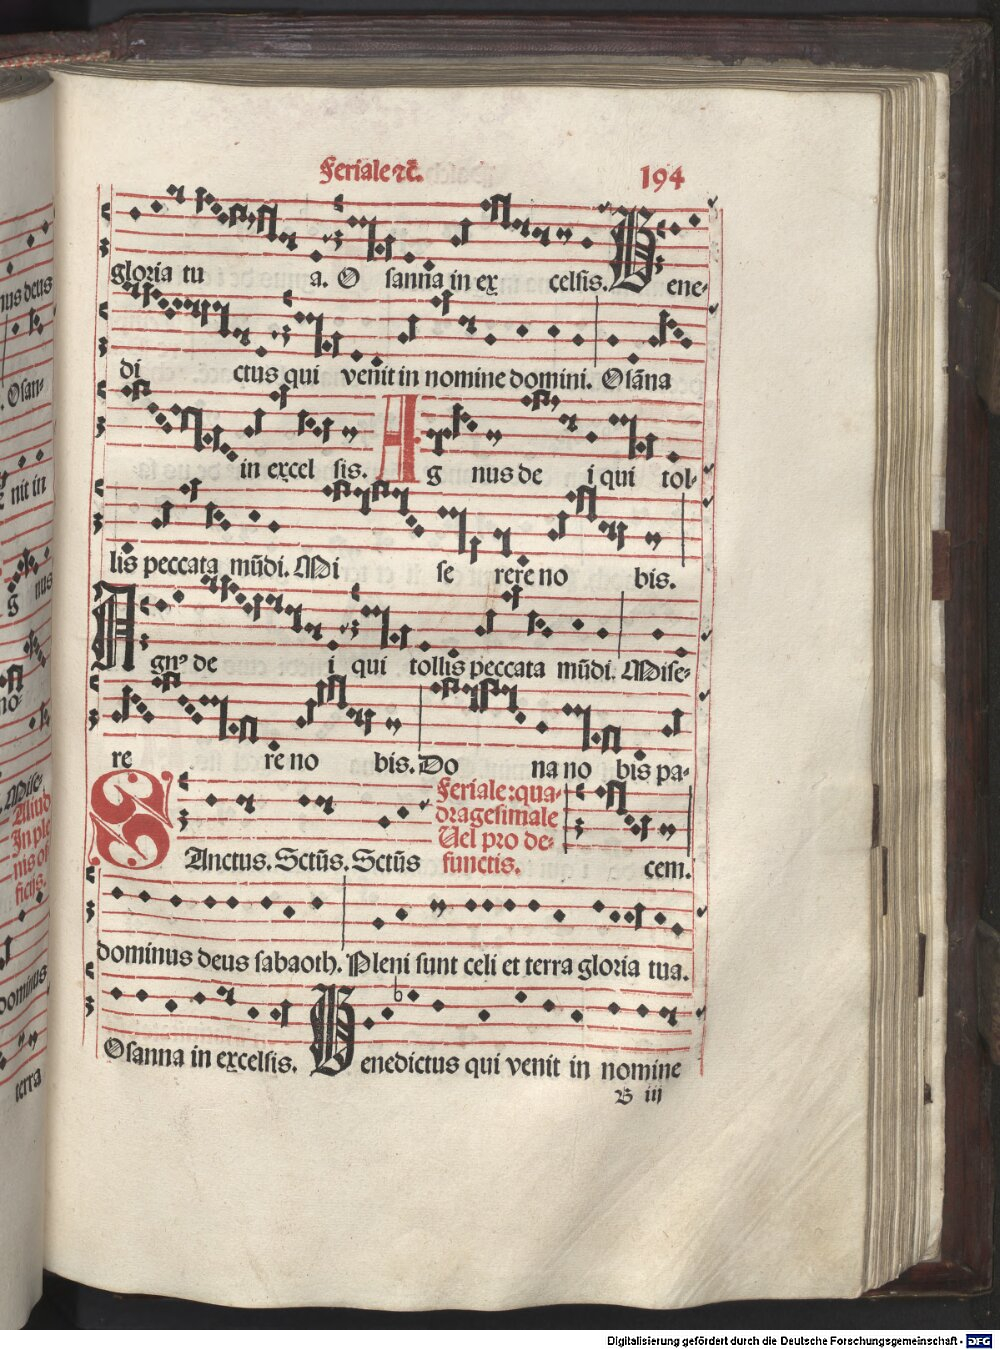 Feriale ⁊c̄.
194
gloria tu a. O sanna in ex celsis. Bene-
di ctus qui venit in nomine domini. Osāna
in excel sis. Ag nus de i qui tol-
lis peccata mūdi. Mi se rere no bis.
Agnꝰ de i qui tollis peccata mūdi. Mise-
re re no bis. Do na no bis pa-
Feriale: qua-
dragesimale
Vel pro de-
functis.
SAnctus. Sctūs. Sctūs
cem.
dominus deus sabaoth. Pleni sunt celi et terra gloria tua.
Osanna in excelsis. Benedictus qui venit in nomine
B iij
nus deus
. Osan-
nit in
g nus
no
. Mise-
Aliud
In ple
nis of
ficijs.
dominus
terra
Digitalisierung gefördert durch die Deutsche Forschungsgemeinschaft - DFG